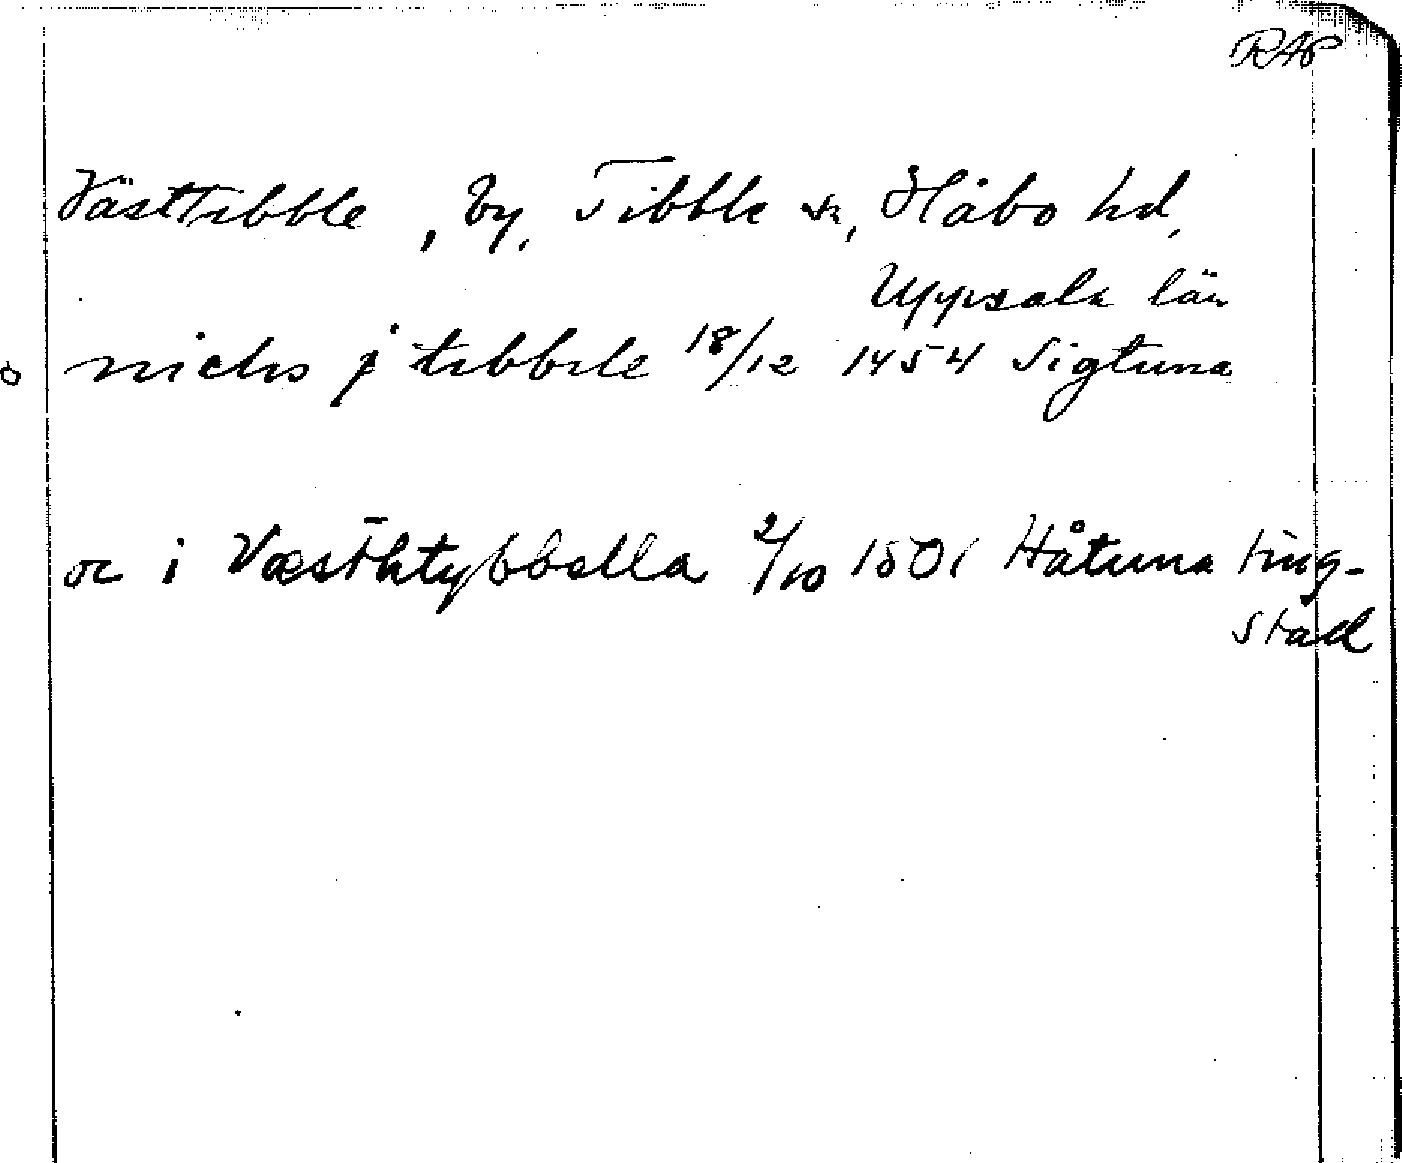 RAP
Västtibble, by, Tibble sn, Håbo hd,
Uppsala län
nichs j tibbele 18/12 1454 Sigtuna
or i Væsthtybbella 2/10 1501 Håtuna ting-
stad